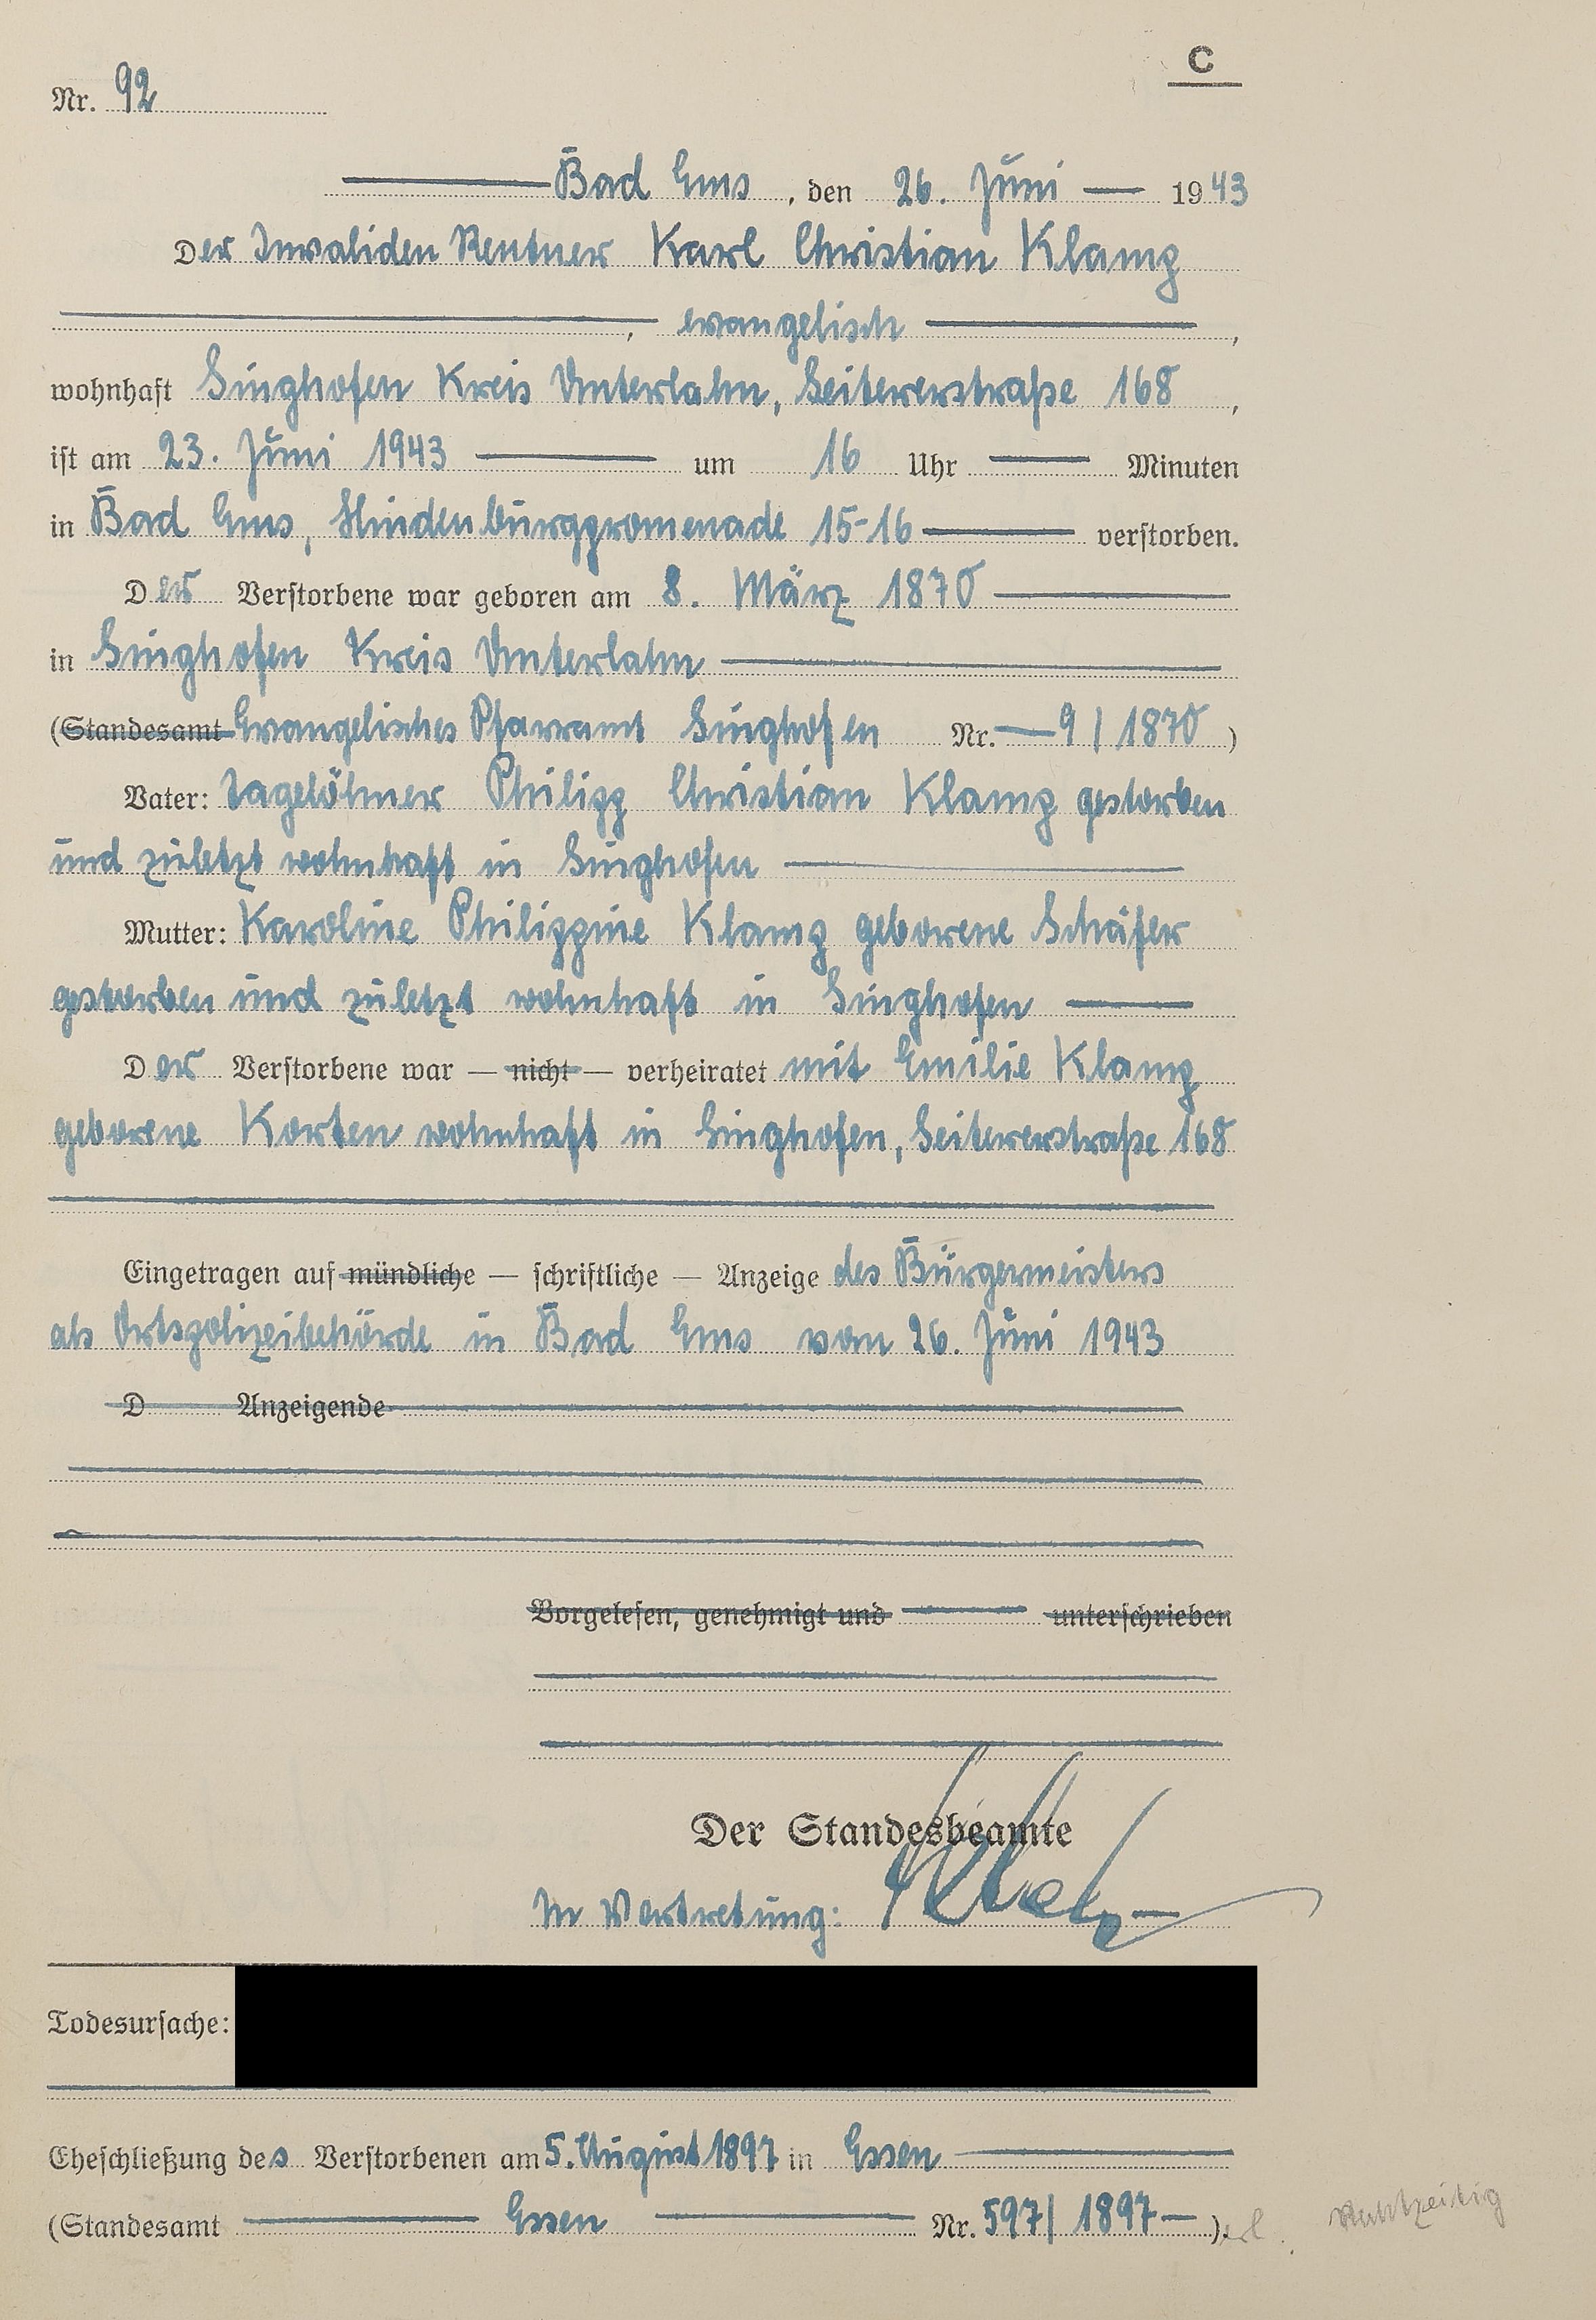 C
Nr. 92
Bad Ems, den 26. Juni 1943
Der Invaliden Rentner Karl Christian Klamp
, evangelisch ,
wohnhaft Singhofen Kreis Unterlahn, Seitererstraße 168 ,
ist am 23. Juni 1943 um 16 Uhr Minuten
in Bad Ems, Hindenburgpromenade 15-16 verstorben.
Der Verstorbene war geboren am 8. März 1870
in Singhofen Kreis Unterlahn
(Standesamt Evangelisches Pfarramt Singhofen Nr. 9 / 1870 )
Vater: Tagelöhner Philipp Christian Klamp gestorben
und zuletzt wohnhaft in Singhofen
Mutter: Karoline Philippine Klamp geborene Schäfer
gestorben und zuletzt wohnhaft in Singhofen
Der Verstorbene war — nicht — verheiratet mit Emilie Klamp
geborene Korten wohnhaft in Singhofen, Seitererstraße 168
Eingetragen auf mündliche — schriftliche — Anzeige des Bürgermeisters
als Ortspolizeibehörde in Bad Ems vom 26. Juni 1943
D Anzeigende
Vorgelesen, genehmigt und unterschrieben
Der Standesbeamte
In Vertretung:
Todesursache:
Eheschließung des Verstorbenen am 5. August 1897 in Essen
(Standesamt Essen Nr. 597/ 1897 ).